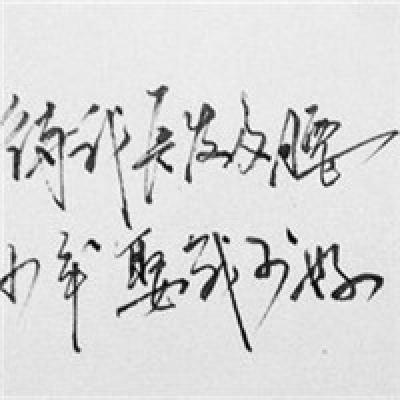 待我長发及腰
少年娶我可好